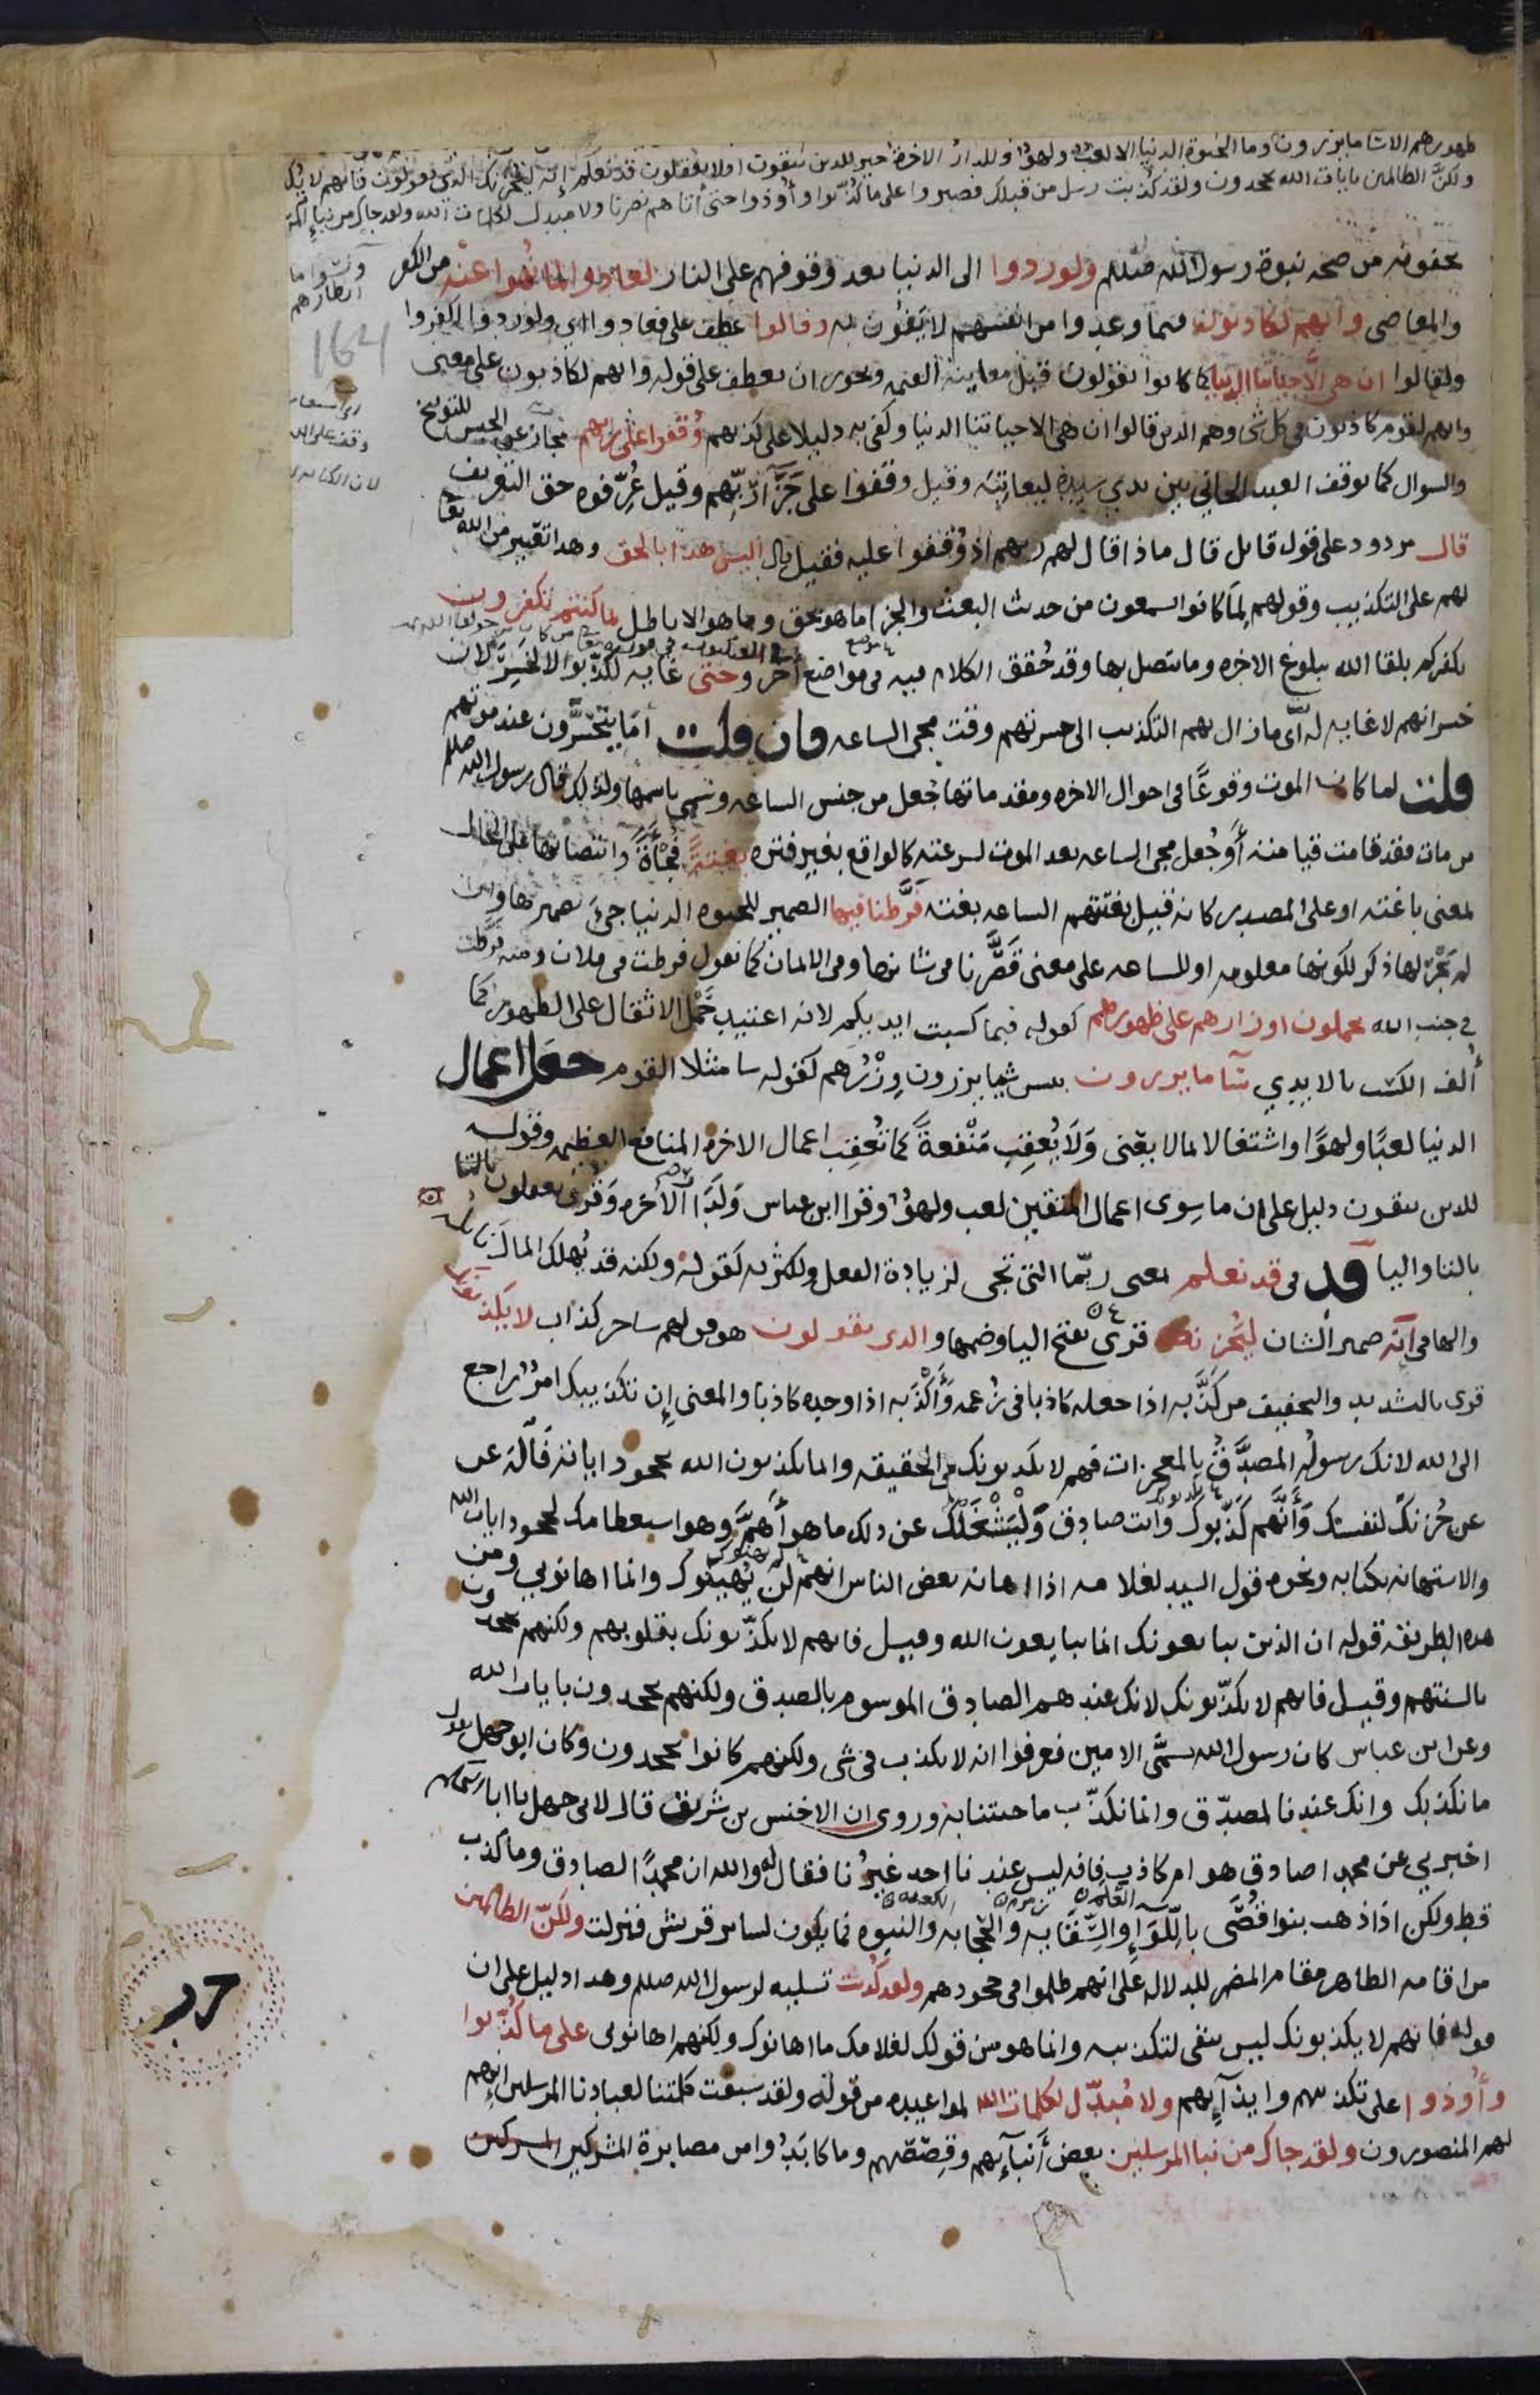 ظهورهم الا سا ما يزرون وما الحيوة الدنيا الا لعب ولهو وللدار الاخرة خير للذين يتقون افلا يعقلون قد نعلم إنه ليحزنك الذي يقولون فانهم لا يكذ
ولكنّ الظالمين بايات الله يجحدون ولقد كذبت رسل من قبلك فصبروا على ما كُذّبوا وأُوذوا حتى أتاهم نصرنا ولا مبدل لكلمات الله ولقد جاك من نبإ
يخفونه من صحه نبوة رسول الله صللم ولو ردوا الى الدنيا بعد وقوفهم على النار لعادوا لما نُهوا عنه من الكفر
والمعاصى وانهم لكاذبون فيما وعدوا من انفسهم لا يَفُون به وقالوا عطف على لعادوا اي ولو ردوا لكفروا
ولقالوا ان هى الاحياتنا الدنيا كما كانوا يقولون قبل معاينة القيمه ويجوز ان يعطف على قوله وانهم لكاذبون على معنى
وانهم لقوم كاذبون فى كل شى وهم الذين قالوا ان هى الاحياتنا الدنيا وكفى به دليلا على كذبهم وُقفوا على ربهم مجاز عن الحبس للتوبيخ
والسوال كما يوقف العبد الجاني بين يدي سيده ليعاتبه وقيل وقفوا على جَزَآ ربّهم وقيل عُرّفوه حق التعريف
قال مردود على قول قايل قال ماذا قال لهم ربهم اذ وُقفوا عليه فقيل قال اليس هذا بالحق وهذا تعيير من الله تعا
لهم على التكذيب وقولهم لِمَا كانوا يسمعون من حديث البعث والجزا ما هو بحق وما هو الا باطل بما كنتم تكفرون
بكفركم بلقا الله ببلوغ الاخره وما يتصل بها وقد حُقق الكلام فيه فى مواضع أُخر وحتى غايه لكذّبوا لا لخَسِرَ لان
خسرانهم لا غايه له أى ما زال بهم التكذيب الى حسرتهم وقت مجى الساعه فان قلت أمَا يتحسّرون عند موتهم
قلت لما كان الموت وقوعًا فى احوال الاخره ومقدماتها جُعل من جنس الساعه وسُمى باسمها ولذلك قال رسول الله صللم
من مات فقد قامت قيامته أَوْ جُعل مجى الساعه بعد الموت لسرعته كالواقع بغير فتره بغتةً فُجْأَةً وانتصابها على الحال
بمعنى باغته او على المصدر كانه قيل بغتتهم الساعه بغته فَرَّطنا فيها الضمير للحيوه الدنيا جىَ بضميرها وان
لم يَجْرِ لها ذكر لكونها معلومه او للساعه على معنى قَصَّرنا فى شانها وفى الايمان كما تقول فرطت فى فلان ومنه فرّطت
فى جنب الله يحملون اوزارهم على ظهورهم كقوله فبما كسبت ايديكم لانه اعتيد حَمْل الاثقال على الظهور كما
أُلف الكسب بالايدي سَآ ما يزرون بيس شيا يزرون وِزْرُهم كقوله سا مثلا القوم جعل اعمال
الدنيا لعبًا ولهوًا واشتغالا بما لا يعنى وَلَا يُعقِب مَنْفعةً كما تُعقِب اعمال الاخره المنافع العظيمه وقوله
للذين يتقون دليل على ان ما سِوى اعمال المتقين لعب ولهوٌ وقرا ابن عباس وَلَدَارُ الاخره وَقُرى يعقلون
بالتا واليا قد فى قد نعلم بمعنى ربّما التى تجى لزيادة الفعل وكثرته كقوله ولكنه قد يُهلك المالَ نايله
والها فى إنّه ضمير الشان ليُحزنك قرى بفتح اليا وضمها والذى يقولون هو قولهم ساحر كذاب لا يكذبونك
قرى بالتشديد والتخفيف من كذَّبه اذا جعله كاذبا فى زعمه وَأَكْذَبه اذا وجده كاذبا والمعنى إن تكذيبك امرٌ راجع
الى الله لانك رسوله المصدَّقُ بالمعجزات فهم لا يكذبونك فى الحقيقه وانما يكذبون الله بجحود اياته فَالْهَ عن
عن حُزنك لنفسك وَأَنَّهم كَذّبوك وانت صادق وَلْيَشْغَلْكَ عن ذلك ما هو أَهَمّ وهو استعظامك لجحود ايات الله
والاستهانه بكتابه ونحوه قول السيد لغلامه اذا اهانه بعض الناس انهم لن يُهينوك وانما اهانوني ومن
هذه الطريقه قوله ان الذين يبايعونك انما يبايعون الله وقيل فانهم لا يكذّبونك بقلوبهم ولكنهم يجحدون
بالسنتهم وقيل فانهم لا يكذّبونك لانك عندهم الصادق الموسوم بالصدق ولكنهم يجحدون بايات الله
وعن ابن عباس كان رسول الله يسمَّى الامين فعرفوا انه لا يكذب فى شى ولكنهم كانوا يجحدون وكان ابو جهل يقول
ما نكذبك وانك عندنا لمصدّق وانما نكذّب ما جئتنا به وروى ان الاخنس بن شريق قال لابى جهل يا ابا الحكم
اخبرني عن محمد اصادق هو ام كاذب فانه ليس عندنا احد غيرُنا فقال له والله ان محمدًا لصادق وما كذب
قط ولكن اذا ذهب بنوا قُصَّى باللّوَاءِ والسِّقَايه والحِجابه والنبوه فما يكون لساير قريش فنزلت ولكنّ الظالمين
من اقامه الظاهر مقام المضمر للدلاله على انهم ظلموا فى جحودهم ولقد كُذبت تسليه لرسول الله صللم وهذا دليل على ان
قوله فانهم لا يكذبونك ليس بنفى لتكذيبه وانما هو من قولك لغلامك ما اهانوك ولكنهم اهانوني على ما كُذّبوا
وأوذوا على تكذيبهم وايذآيهم ولا مُبدّل لكلمات الله لمواعيده من قوله ولقد سبقت كلمتنا لعبادنا المرسلين انهم
لهم المنصورون ولقد جاك من نبا المرسلين بعض أَنبآيهم وقِصَصهم وما كابَدُوا من مصابرة المشركين المشركين
164